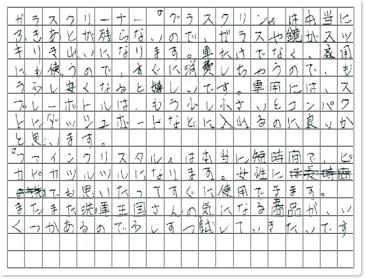 ガラスクリーナー『グラスクリン』は本当に
ふきあとが残らないので、ガラスや鏡がスッ
キリきれいになります。車だけでなく、家用
にも使うので、すぐに消費しちゃうので、も
う少し安くなると嬉しいです。車用には、ス
プレーボトルは、もう少し小さいとコンパク
トにダッシュボードなどに入れるのに良いか
と思います。
『ファインクリスタル』は本当に短時間で、ピ
カピカツルツルになります。女性に
でも思いたってすぐに使用できます。
またまた洗車王国さんの気になる商品が、い
くつかあるので少しずつ試していきたいです